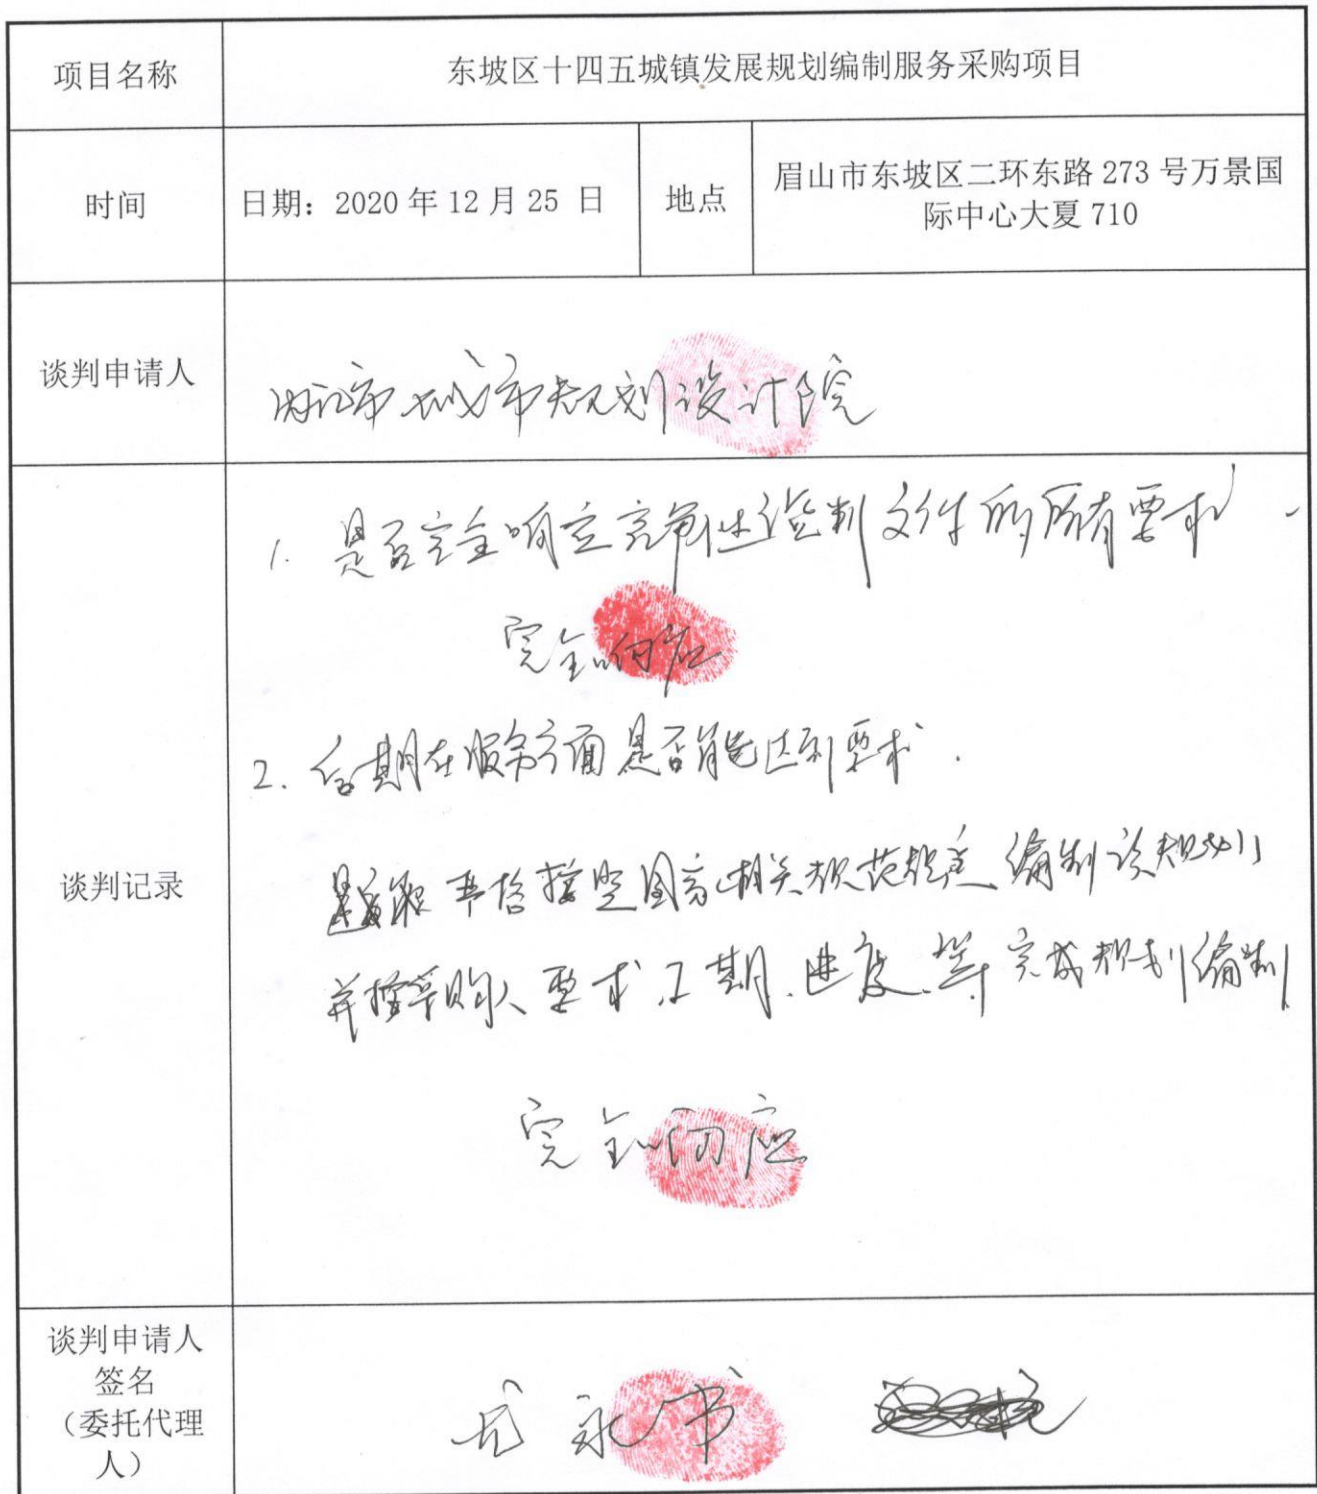 项目名称
东坡区十四五城镇发展规划编制服务采购项目
时间
日期：2020 年 12 月 25 日
地点
眉山市东坡区二环东路 273 号万景国
际中心大夏 710
谈判申请人
内江市城市规划设计院
谈判记录
1. 是否完全响应竞争性谈判文件的所有要求.
完全响应
2. 后期在服务方面是否能达到要求.
严格按照国家相关规范规定编制该规划
并按采购人要求、工期、进度、等完成规划编制
完全响应
谈判申请人
签名
（委托代理
人）